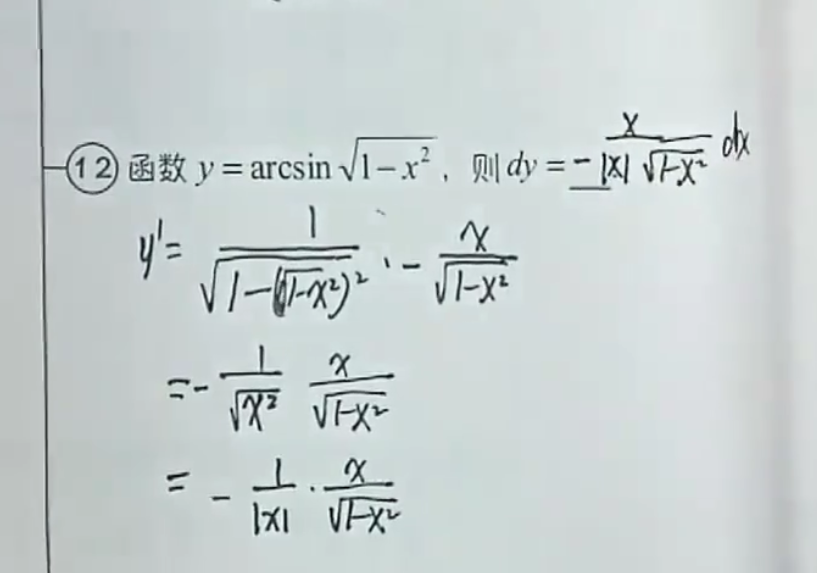 12 函数 y = arcsin √(1-x²), 则 dy = - x/(|x| √(1-x²)) dx
y' = 1/√(1-(√(1-x²))²) · - x/√(1-x²)
= - 1/√(x²) x/√(1-x²)
= - 1/|x| · x/√(1-x²)